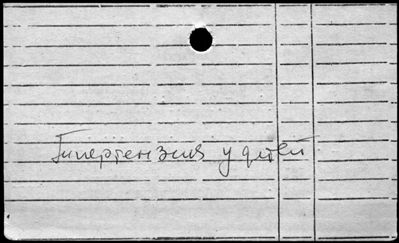 Гипертензия у детей